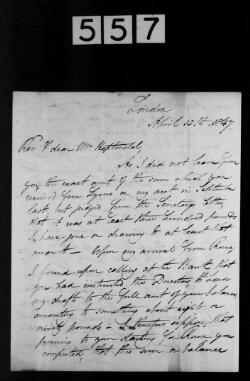 557
London
April 12th 1847.
Rev & dear Mr Heptonstall,
As I did not learn from
you the exact amt of the sum which you
received from Lyons on my acct in September
last, but judged from the
that it was at least three hundred pounds
I have gone on drawing to at least that
amount — Upon my arrival from Rome
I found upon calling at the Bank that
you had instructed the Directors to honor
my drafts to the full amt of your balance,
amounting to something about eighty or
ninety pounds —
previous to your starting for Rome you
computed, that the sum or balance